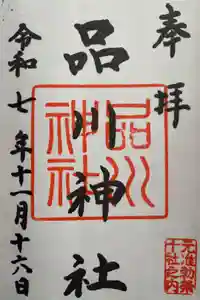 奉拝
品川神社
品川神社
元准勅祭
十社之内
令和七年十一月十六日